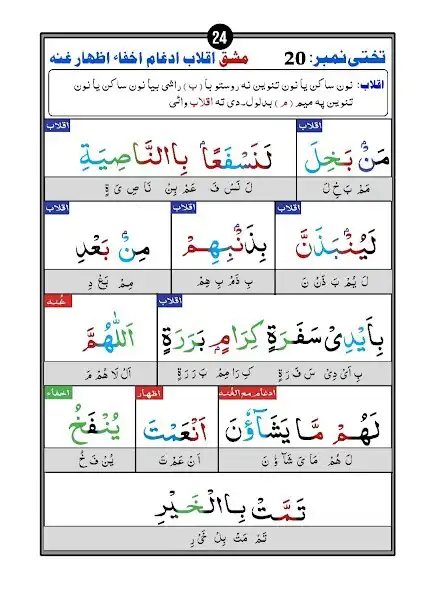 24
تختی نمبر: 20 مشق اقلاب ادغام اخفاء اظهار غنه
اقلاب: نون ساکن یا نون تنوین نه روستو با (ب) راشی بیا نون ساکن یا نون
تنوین په میم (م) بدلول۔دی ته اقلاب وائی
اقلاب اقلاب
مَنْۢ بَخِلَ لَنَسْفَعًاۢ بِاالنَّاصِيَةِ
مَمْ بَ خِ لَ لَ نَسْ فَ عَمْ بِنْ نَا صِ یَ ةِ
اقلاب اقلاب اقلاب
لَيُنْۢبَذَنَّ بِذَنْۢبِهِمْ مِنْۢ بَعْدِ
لَ یُمْ بَ ذَنْ نَ بِ ذَمْ بِ هِمْ مِمْ بَعْ دِ
اقلاب غنه
بِاَيْدِیْ سَفَرَةٍ كِرَامٍۢ بَرَرَةٍ اَللّٰهُمَّ
بِ اَیْ دِیْ سَ فَ رَةٍ كِ رَا مِمْ بَ رَ رَةٍ اَلْ لَا هُمْ مَ
ادغام مع الغنه اظهار اخفاء
لَهُمْ مَّا يَشَآؤُنَ اَنْعَمْتَ يُنْفَخُ
لَ هُمْ مَا یَ شَآ ؤُ نَ اَنْ عَمْ تَ یُنْ فَ خُ
تَمَّتْ بِاالْخَيْرِ
تَمْ مَتْ بِلْ خَیْ رِ